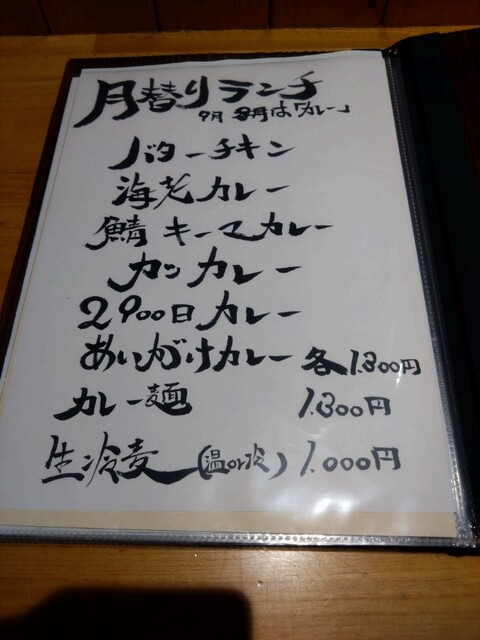 月替りランチ
9月 8月は「カレー」
バターチキン
海老カレー
鯖キーマカレー
カツカレー
2900日カレー
あいがけカレー 各1.300円
カレー麺 1.300円
生冷麦(温or冷) 1.000円